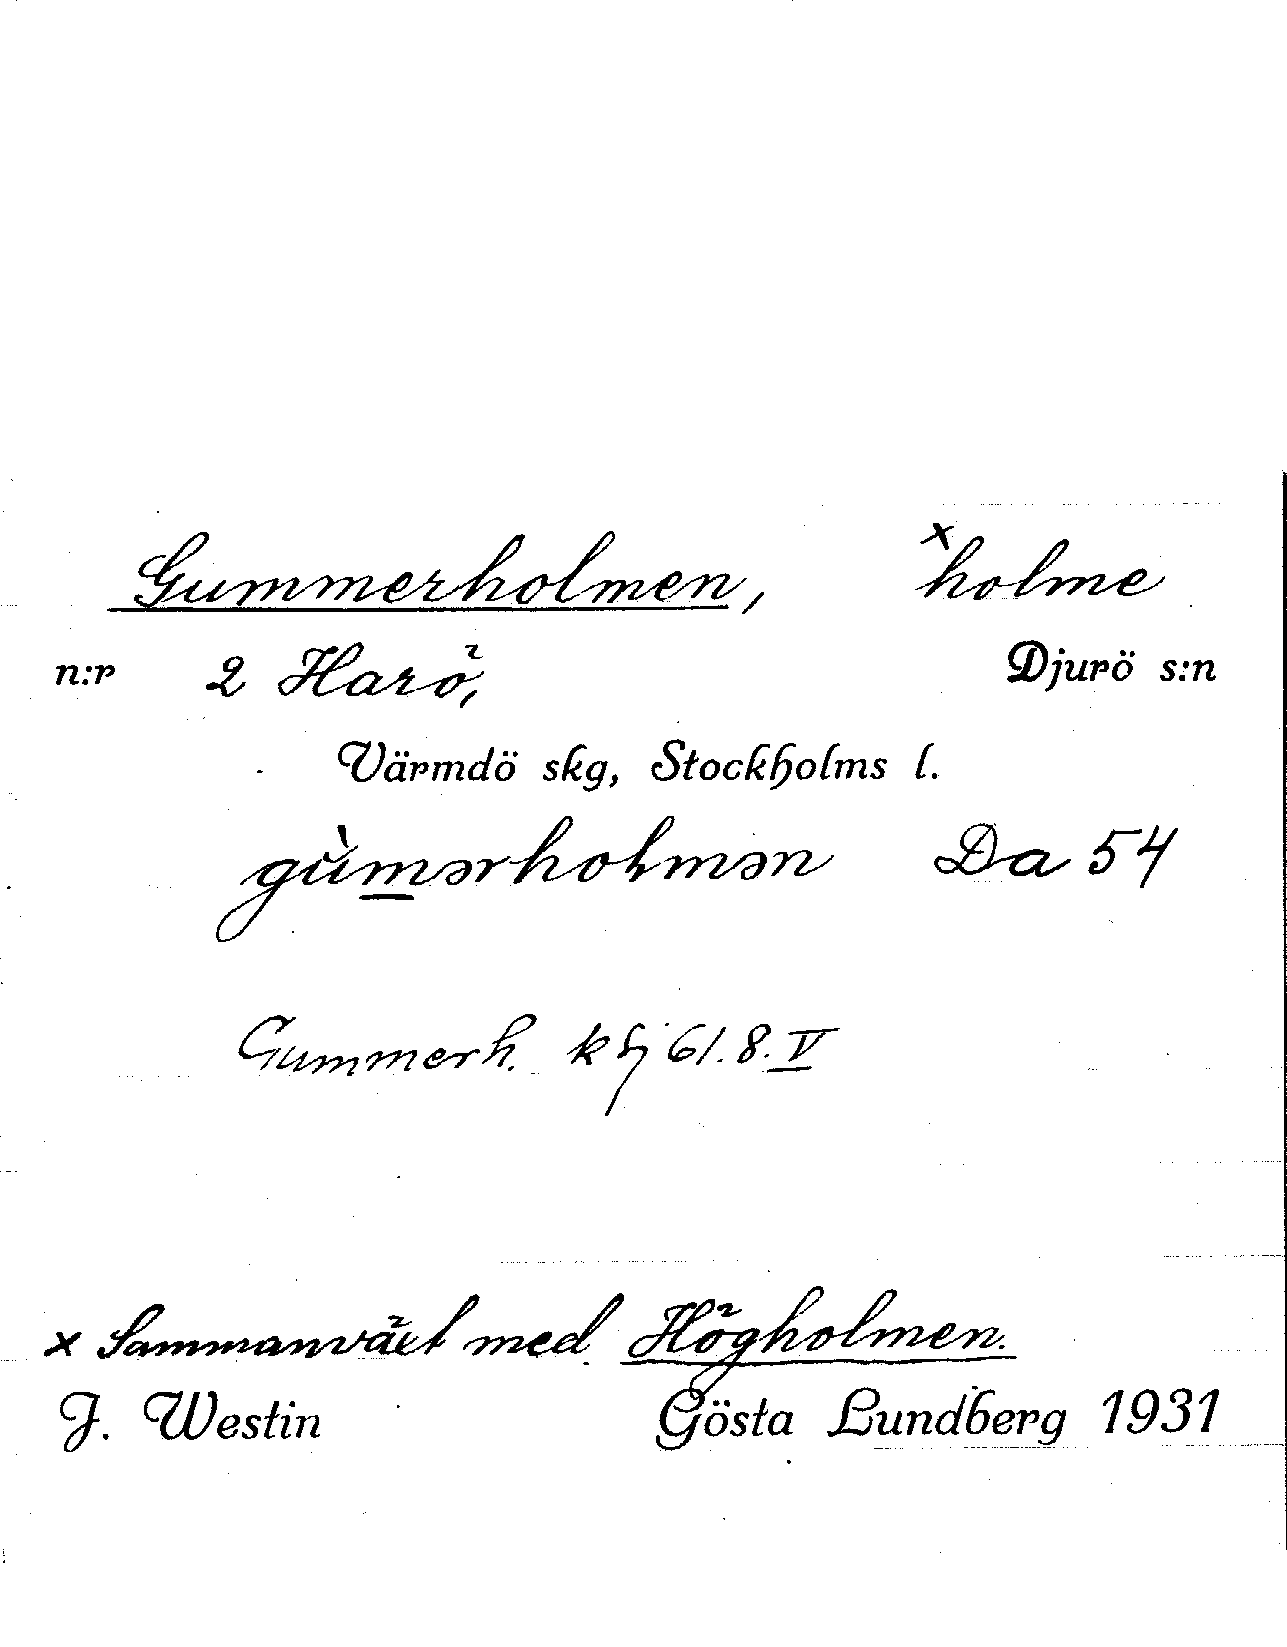 Gummerholmen, xholme
n:r 2 Harö, Djurö s:n
Värmdö skg, Stockholms l.
gùmərholmən Da 54
Gummerh. 61.8.V
x Sammanväxt med Högholmen.
J. Westin Gösta Lundberg 1931